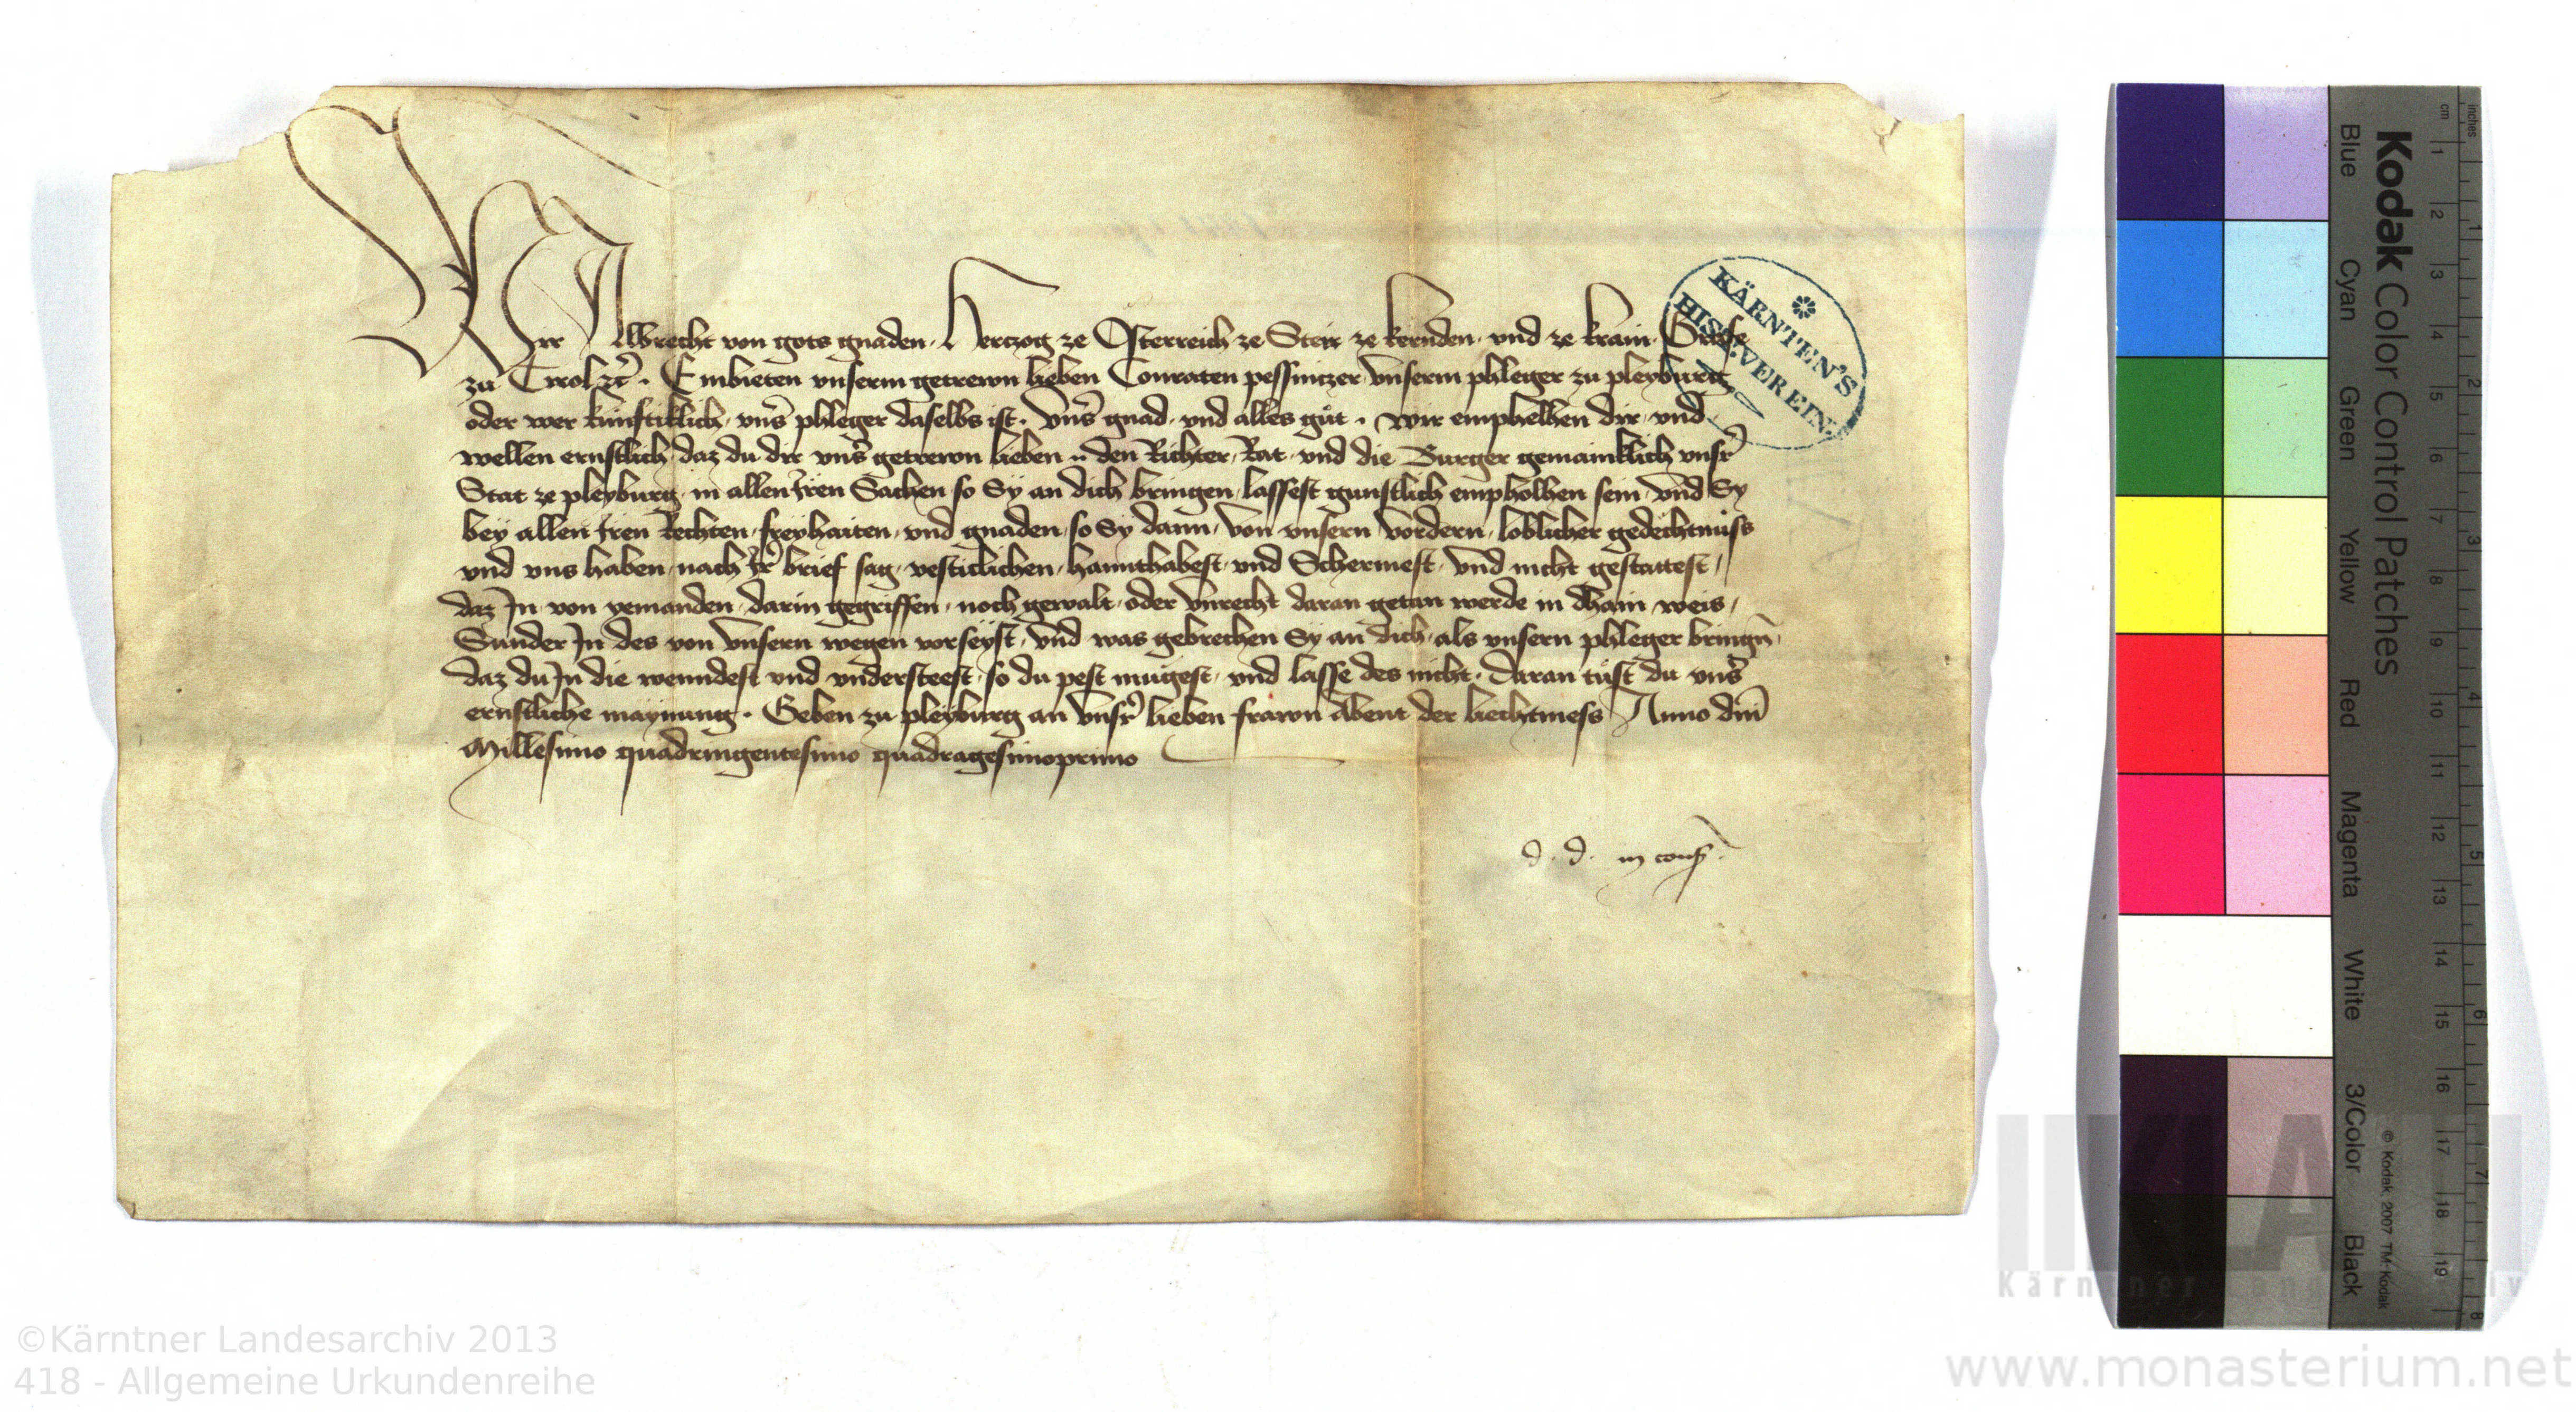 Wir Albrecht von gots gnaden. Herczog ze Österreich ze Steir ze kernden. vnd ze krain. Graffe
zu Tirol ꝛc̃. Embieten vnserm getrewn lieben Conraten pessniczer vnserm phleger zu pleyburg
oder wer künftiklich vnẜ phleger daselbs ist. vnẜ gnad. vnd alles gůt. wir emphelhen dir vnd
wellen ernstlich daz du dir vnẜ getrewn lieben .. den Richter, Rat vnd die Burger gemainklich vnsr̃
Stat ze pleyburg in allen Iren Sachen so Sy an dich bringen lassest gunstlich empholhen sein vnd Sy
bey allen Iren Rechten freyhaiten vnd gnaden so Sy dann von vnsern vordern loblicher gedechtnüss
vnd vns haben nach Ir̃ brief sag vesticlichen hannthabest vnd Schermest vnd nicht gestattest
daz In von yemanden darin gegriffen noch gewalt oder vnrecht daran getan werde in dhain weis
Sunder In des von vnsern wegen vorseyst vnd was gebrechen Sy an dich als vnsern phleger bringn̄
daz du In die wenndest vnd vndersteest so du pest mügest vnd lasse des nicht. daran tůst du vnẜ
ernstliche maynung. Geben zu pleyburg an vnsr̃ lieben frawn Abent der liechtmess Anno dn̄i
Millesimo quadringentesimo quadragesimoprimo
d. d. in cons̃.
KÄRNTEN'S
HIST. VEREIN.
Kodak Color Control Patches
Blue Cyan Green Yellow Red Magenta White 3/Color Black
© Kodak, 2007 TM: Kodak
cm 1 2 3 4 5 6 7 8 9 10 11 12 13 14 15 16 17 18 19
inches 1 2 3 4 5 6 7 8
©Kärntner Landesarchiv 2013
418 - Allgemeine Urkundenreihe
www.monasterium.net